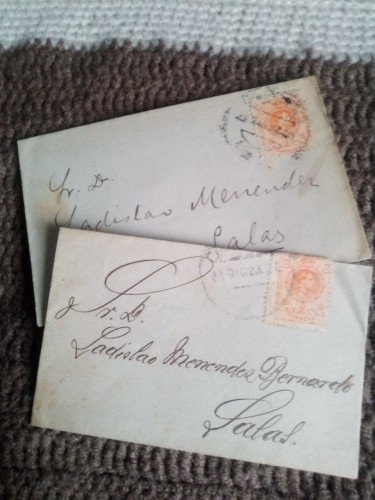 Sr. D.
Ladislao Menendez
Salas
Sr. D.
Ladislao Menendez Bernardo
Salas.